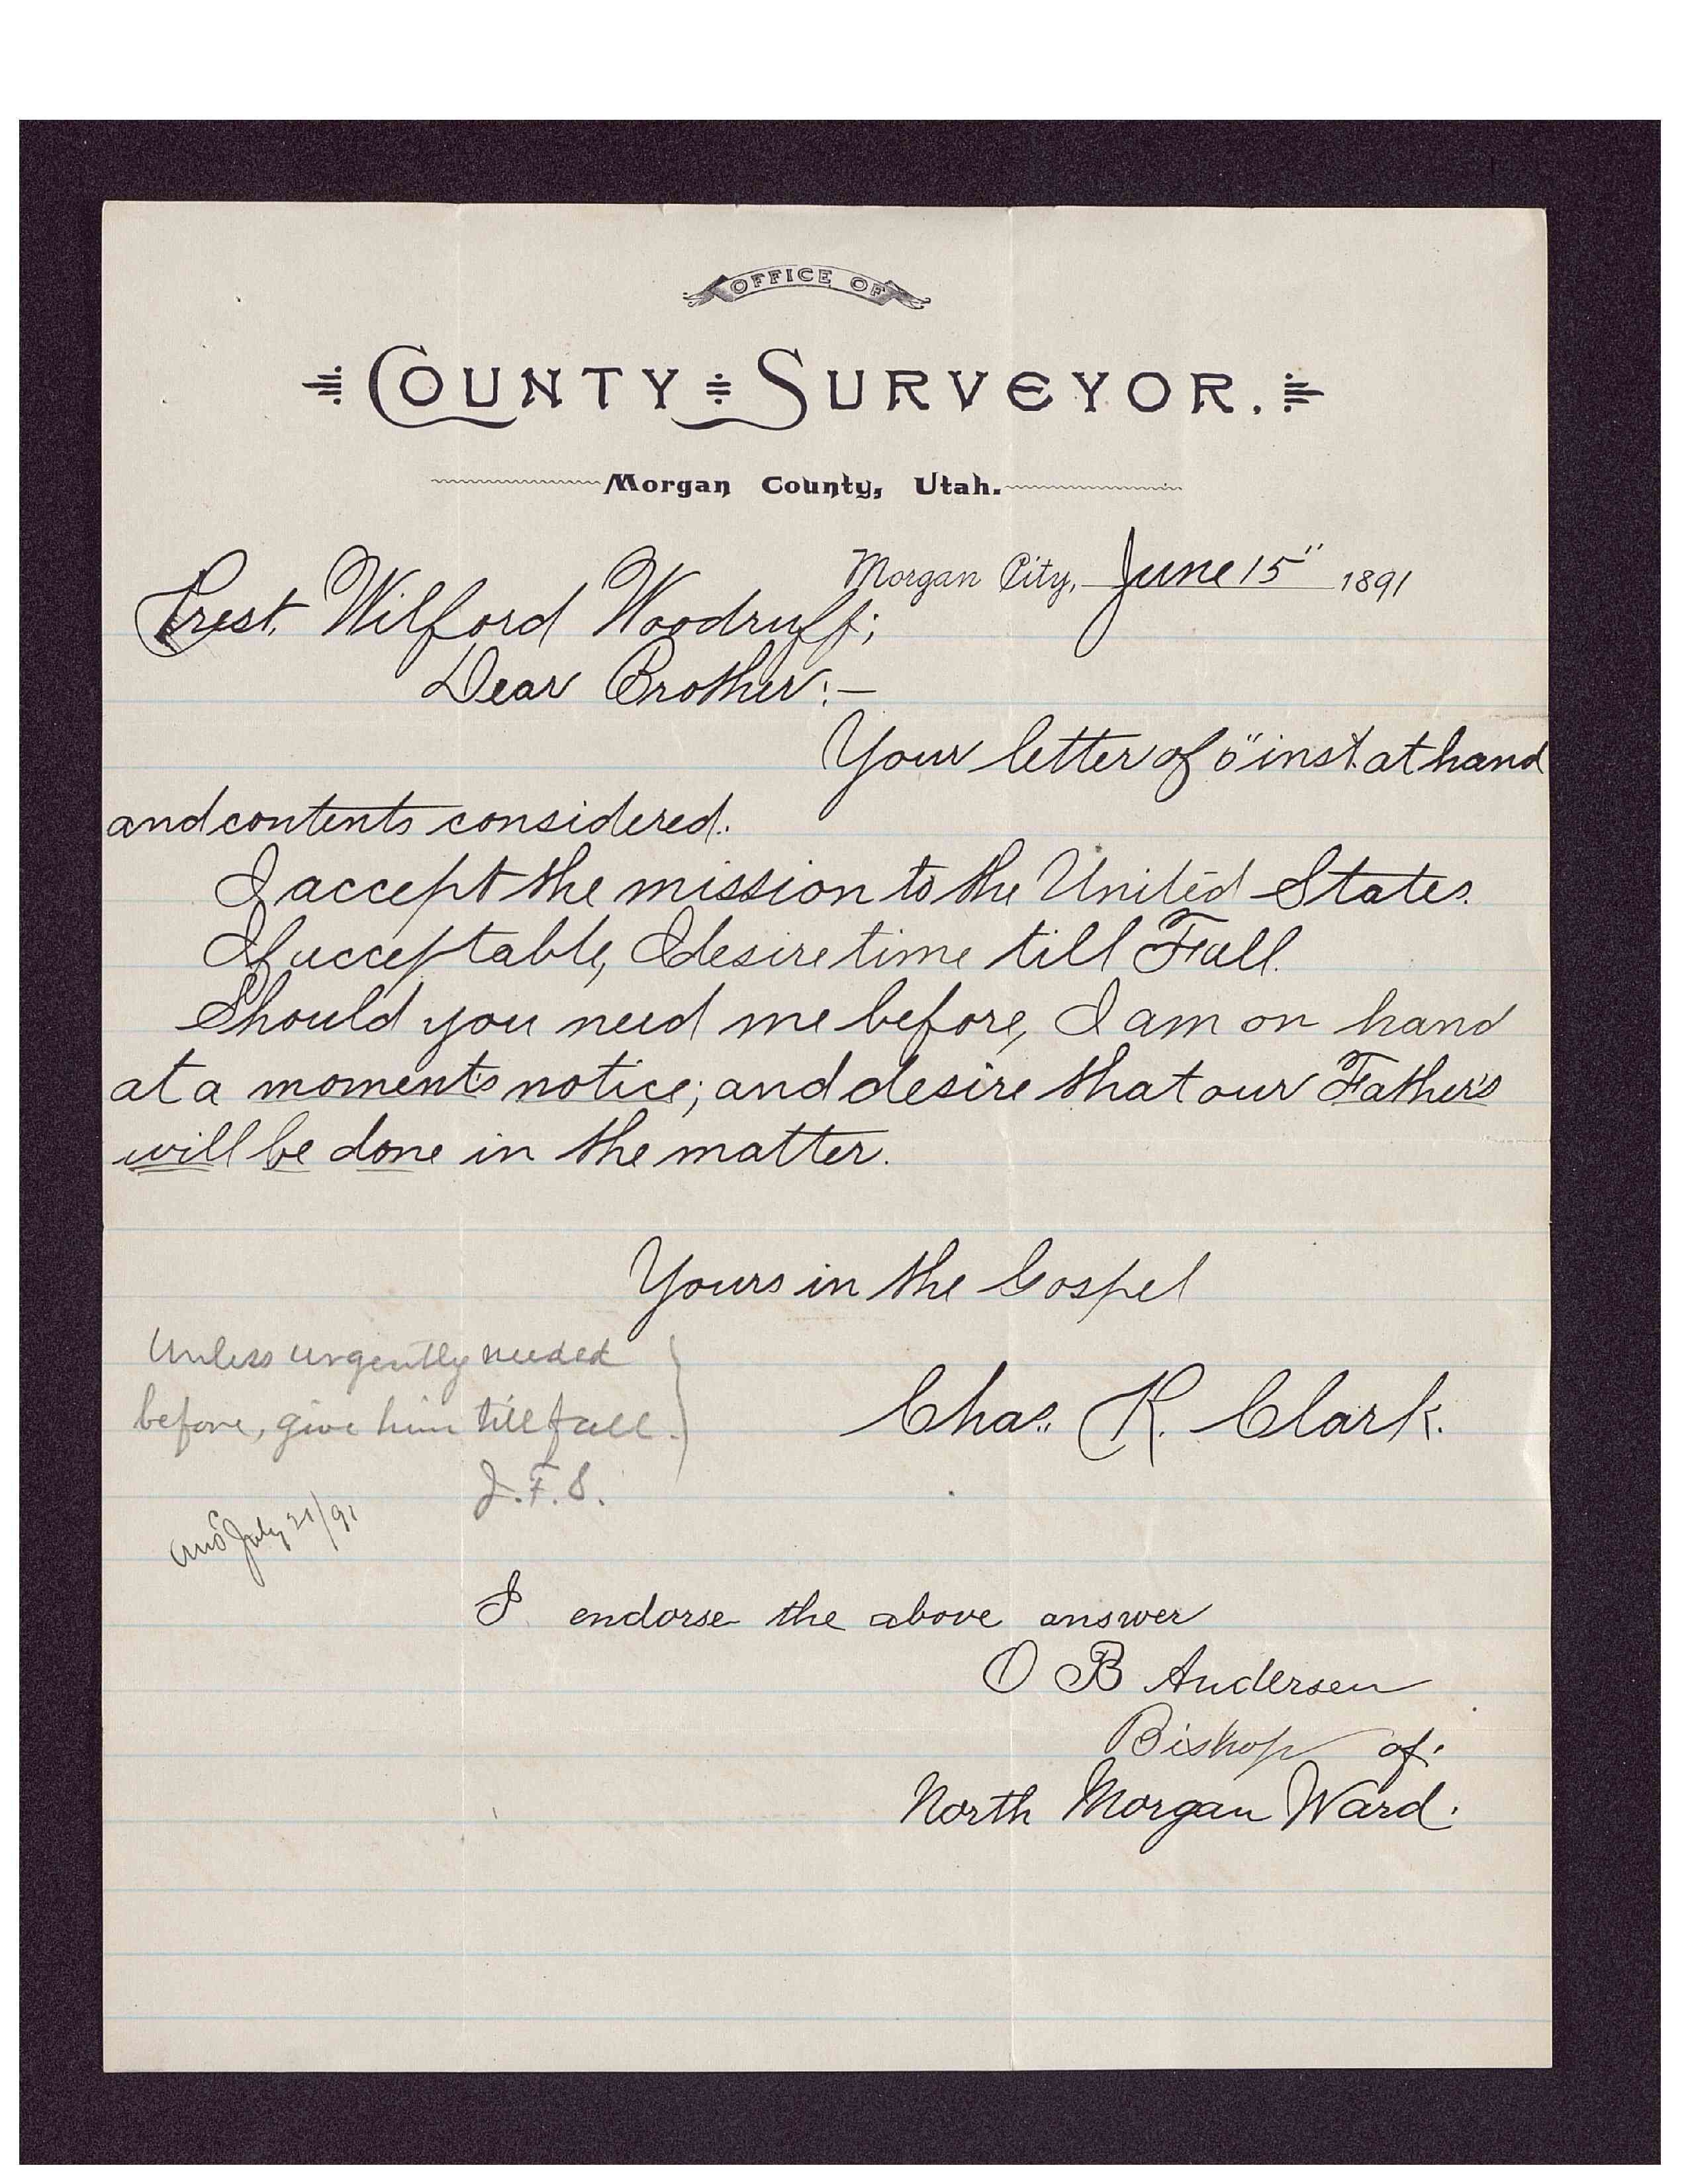 OFFICE OF
COUNTY SURVEYOR.
Morgan County, Utah.
Morgan City, June 15" 1891
Prest. Wilford Woodruff;
Dear Brother:—
Your letter of inst. at hand
and contents considered.
I accept the mission to the United States.
If acceptable, I desire time till Fall.
Should you need me before, I am on hand
at a moment's notice; and desire that our Father's
will be done in the matter.
Yours in the Gospel
Chas. R. Clark.
Unless urgently needed
before, give him till fall.
J.F.S.
July 21/91
I endorse the above answer
O B Andersen
Bishop of
North Morgan Ward.